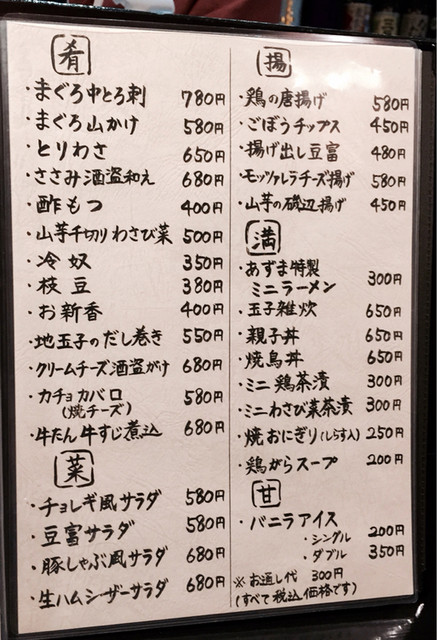 肴
・まぐろ中とろ刺 780円
・まぐろ山かけ 580円
・とりわさ 650円
・ささみ酒盗和え 680円
・酢もつ 400円
・山芋千切りわさび菜 500円
・冷奴 350円
・枝豆 380円
・お新香 400円
・地玉子のだし巻き 550円
・クリームチーズ酒盗がけ 680円
・カチョカバロ 580円
(焼チーズ)
・牛たん牛すじ煮込 680円
菜
・チョレギ風サラダ 580円
・豆富サラダ 580円
・豚しゃぶ風サラダ 680円
・生ハムシーザーサラダ 680円
揚
・鶏の唐揚げ 580円
・ごぼうチップス 450円
・揚げ出し豆富 480円
・モッツァレラチーズ揚げ 580円
・山芋の磯辺揚げ 450円
満
・あずま特製
ミニラーメン 300円
・玉子雑炊 650円
・親子丼 650円
・焼鳥丼 650円
・ミニ鶏茶漬 300円
・ミニわさび菜茶漬 300円
・焼おにぎり(しらす入) 250円
・鶏がらスープ 200円
甘
・バニラアイス
・シングル 200円
・ダブル 350円
※お通し代 300円
(すべて税込価格です)